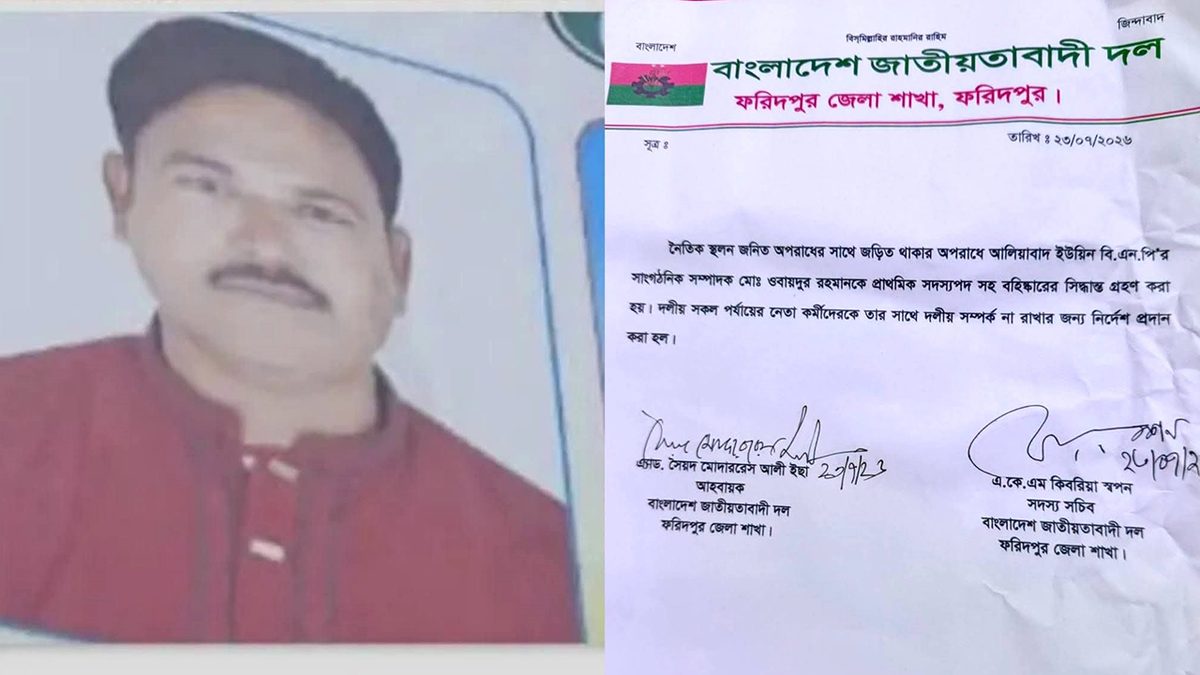 জিন্দাবাদ
বিস্‌মিল্লাহির রাহমানির রাহিম
বাংলাদেশ
বাংলাদেশ জাতীয়তাবাদী দল
ফরিদপুর জেলা শাখা, ফরিদপুর।
সূত্র ঃ
তারিখ ঃ ২৩/০৭/২০২৬
নৈতিক স্থলন জনিত অপরাধের সাথে জড়িত থাকার অপরাধে আলিয়াবাদ ইউয়িন বি.এন.পি'র
সাংগঠনিক সম্পাদক মোঃ ওবায়দুর রহমানকে প্রাথমিক সদস্যপদ সহ বহিষ্কারের সিদ্ধান্ত গ্রহণ করা
হয়। দলীয় সকল পর্যায়ের নেতা কর্মীদেরকে তার সাথে দলীয় সম্পর্ক না রাখার জন্য নির্দেশ প্রদান
করা হল।
এ্যাড. সৈয়দ মোদাররেস আলী ইছা
আহবায়ক
বাংলাদেশ জাতীয়তাবাদী দল
ফরিদপুর জেলা শাখা।
এ.কে.এম কিবরিয়া স্বপন
সদস্য সচিব
বাংলাদেশ জাতীয়তাবাদী দল
ফরিদপুর জেলা শাখা।